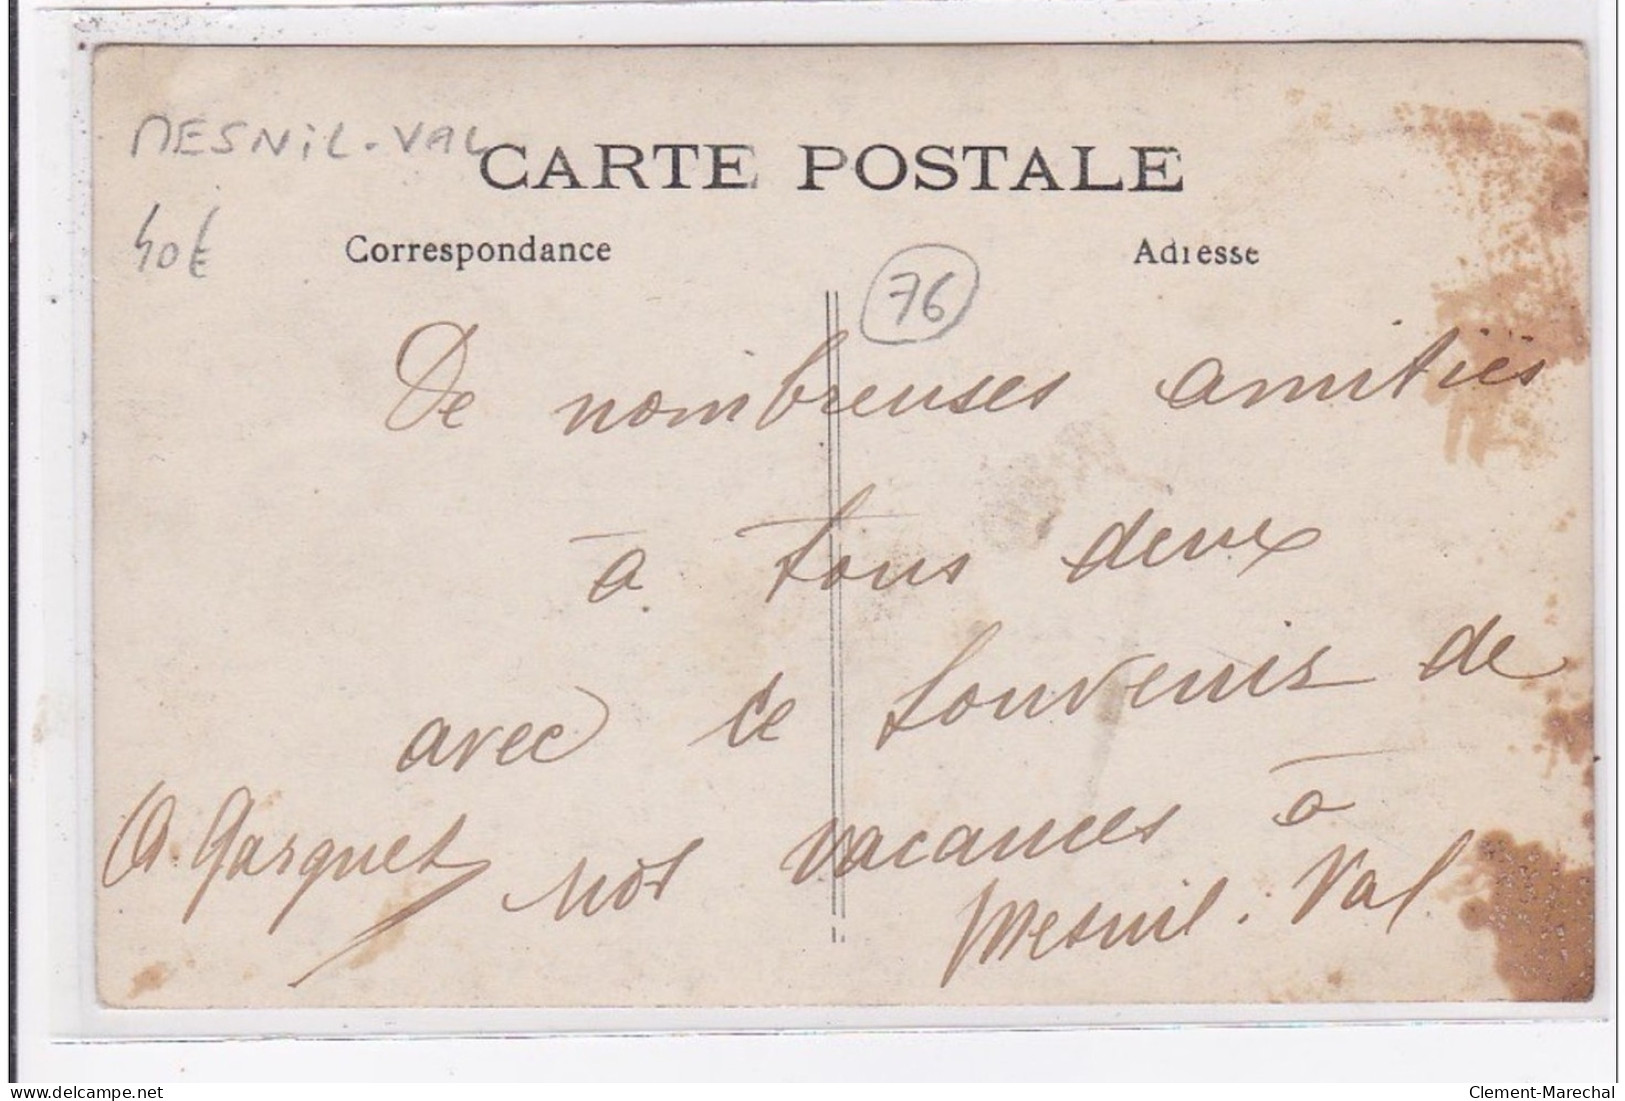 MESNIL-VAL
CARTE POSTALE
40€
Correspondance
Adresse
76
De nombreuses amitiés
à tous deux
avec ce souvenir de
nos vacances à
Mesnil-Val
A. Gasquet
delcampe.net
Clement-Marechal